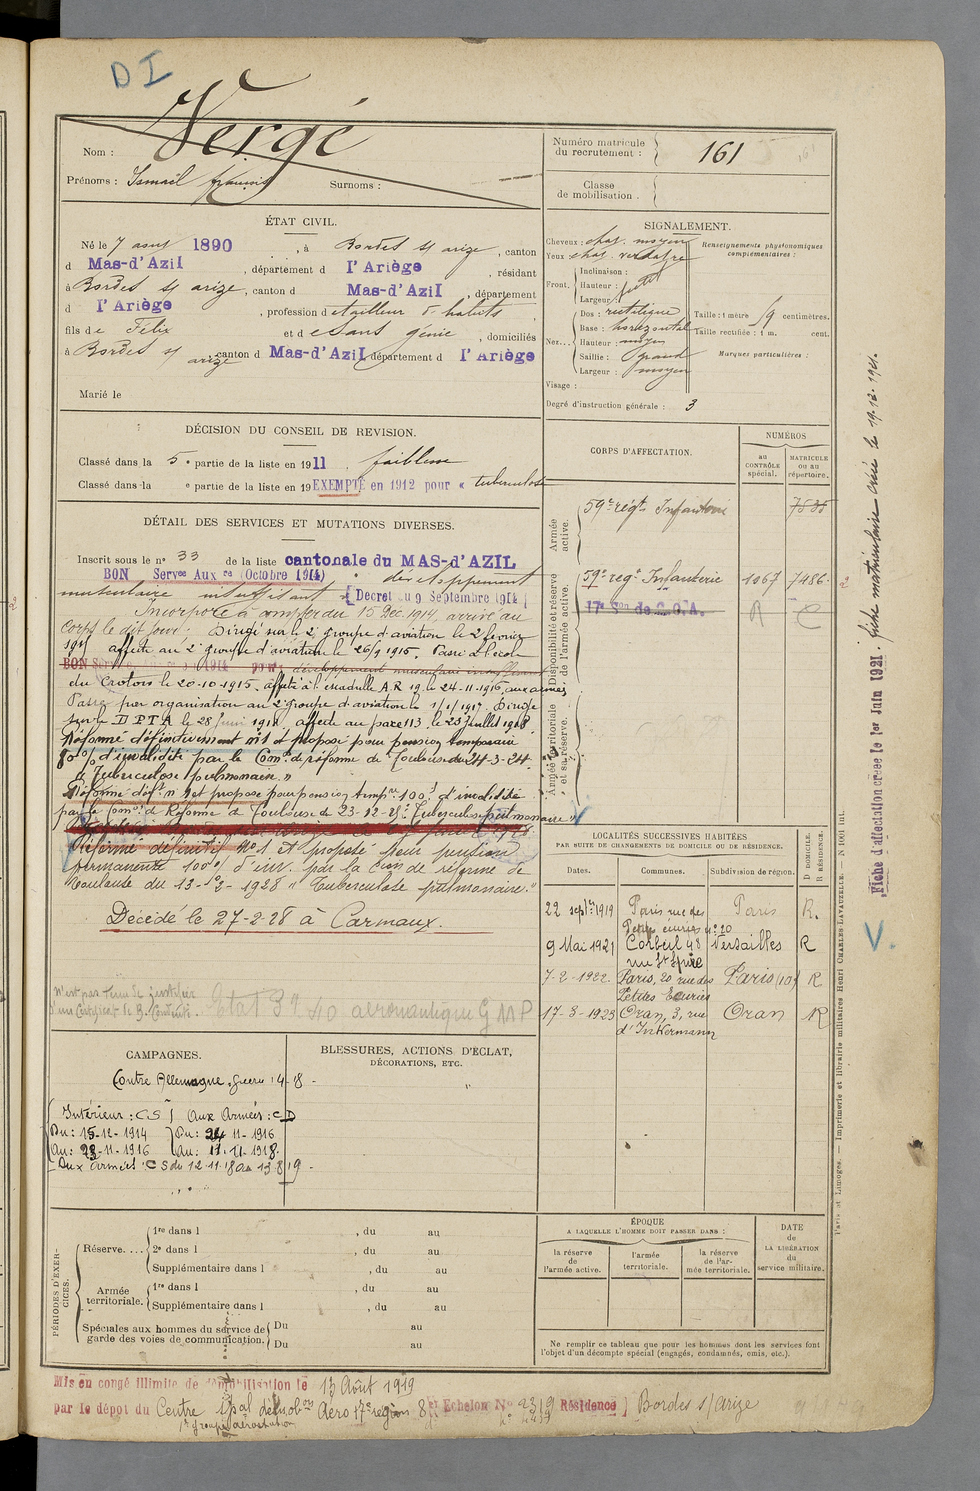 D I
Nom : Vergé
Prénoms : Ismaël François Surnoms :
Numéro matricule
du recrutement : 161
Classe
de mobilisation.
ÉTAT CIVIL.
Né le 7 août 1890 , à Bordes s/ arize , canton
d Mas-d'Azil , département d l'Ariège , résidant
à Bordes s/ arize , canton d Mas-d'Azil , département
d l'Ariège , profession d tailleur d'habits ,
fils de Félix et d , domiciliés
à Bordes s/ arize canton d Mas-d'Azil département d l'Ariège
Marié le
SIGNALEMENT.
Cheveux : chat. moyen
Yeux chat. verdâtre
Front. Inclinaison :
Hauteur : petit
Largeur :
Nez... Dos : rectiligne
Base : horizontal
Hauteur : moyen
Saillie : grand
Largeur : moyen
Visage :
Degré d'instruction générale : 3
Renseignements physionomiques
complémentaires :
Taille : 1 mètre 59 centimètres.
Taille rectifiée : 1 m. cent.
Marques particulières :
DÉCISION DU CONSEIL DE REVISION.
Classé dans la 5e partie de la liste en 1911 . faiblesse
Classé dans la e partie de la liste en 19 EXEMPTÉ en 1912 pour « tuberculose
DÉTAIL DES SERVICES ET MUTATIONS DIVERSES.
Inscrit sous le n° 33 de la liste cantonale du MAS-d'AZIL
BON Servce Auxre (Octobre 1914) développement
musculaire insuffisant » [Decret du 9 Septembre 1914]
Incorporé à compter du 15 Déc. 1914, arrivé au
Corps le dit jour. Dirigé sur le 2e groupe d'aviation le 2 février
1915 affecté au 2e groupe d'aviation le 26/9 1915. Passé à l'école
BON Service 1914 pour développement musculaire insuffisant
du Crotoy le 20-10-1915. affecté à l'escadrille A.R 19 le 24-11-1916, aux armées
Passé par organisation au 2e groupe d'aviation le 1/1/1917. Dirigé
sur le D P T A le 28 juin 1918, affecté au parc 113 le 23 juillet 1918.
Réformé définitivement n°1 et proposé pour pension temporaire
80% d'invalidité par la Comon de réforme de Toulouse du 24-3-24.
« Tuberculose pulmonaire. »
Réformé déft n°1 et proposé pour pension tempre 100% d'invalidité
par la Comon de Réforme de Toulouse du 23-12-25. Tuberculose pulmonaire »
Réformé définitif N°1 et proposé pour pension
permanente 100% d'inv. par la Con de réforme de
Toulouse du 13- -2- 1928 « Tuberculose pulmonaire. »
Décédé le 27-2-28 à Carmaux.
n'est pas tenu de justifier
d'un Certificat de B. Conduite. Etat 3e aéronautique G M P
CORPS D'AFFECTATION.
NUMÉROS
au
CONTRÔLE
spécial.
MATRICULE
ou au
répertoire.
Armée
active.
59e régt Infanterie 7585
Disponibilité et réserve
de l'armée active.
59e régt Infanterie 1067 7486
17e Son de C.O.A.
Armée territoriale
et sa réserve.
Fiche d'affectation créée le 1er Juin 1921. fiche matriculaire créée le 19.12.1921.
LOCALITÉS SUCCESSIVES HABITÉES
PAR SUITE DE CHANGEMENTS DE DOMICILE OU DE RÉSIDENCE.
Dates. Communes. Subdivision de région. D DOMICILE. R RÉSIDENCE.
22 septbre 1919 Paris rue des Paris R.
Petites écuries n° 20
9 Mai 1921 Corbeil 48 Versailles R
rue St Spire
7-2-1922 Paris, 20 rue des Paris (10) R
Petites Ecuries
17-3-1923 Oran, 3, rue Oran R
d'Inkermann
CAMPAGNES.
Contre Allemagne. Guerre 14-18.
Intérieur : CS Aux Armées : CD
Du : 15-12-1914 Du : 24 11-1916
Au : 23-11-1916 Au : 11-11-1918.
Aux armées CS du 12.11.18 au 13 8 19.
BLESSURES, ACTIONS D'ÉCLAT,
DÉCORATIONS, ETC.
PÉRIODES D'EXERCICES.
Réserve.... 1re dans l , du au
2e dans l , du au
Supplémentaire dans l , du au
Armée
territoriale. 1re dans l , du au
Supplémentaire dans l , du au
Spéciales aux hommes du service de
garde des voies de communication. Du au
Du au
ÉPOQUE
A LAQUELLE L'HOMME DOIT PASSER DANS :
la réserve
de
l'armée active.
l'armée
territoriale.
la réserve
de l'ar-
mée territoriale.
DATE
de
LA LIBÉRATION
du
service militaire.
Ne remplir ce tableau que pour les hommes dont les services font
l'objet d'un décompte spécial (engagés, condamnés, omis, etc.).
Paris et Limoges. — Imprimerie et librairie militaires Henri CHARLES-LAVAUZELLE.
Mis en congé illimité de démobilisation le 13 Août 1919
par le dépôt du Centre démobon Aéro 17e région 8e Echelon N° 2319 Résidence ] Bordes s/ Arize
1er groupe d'aérostation